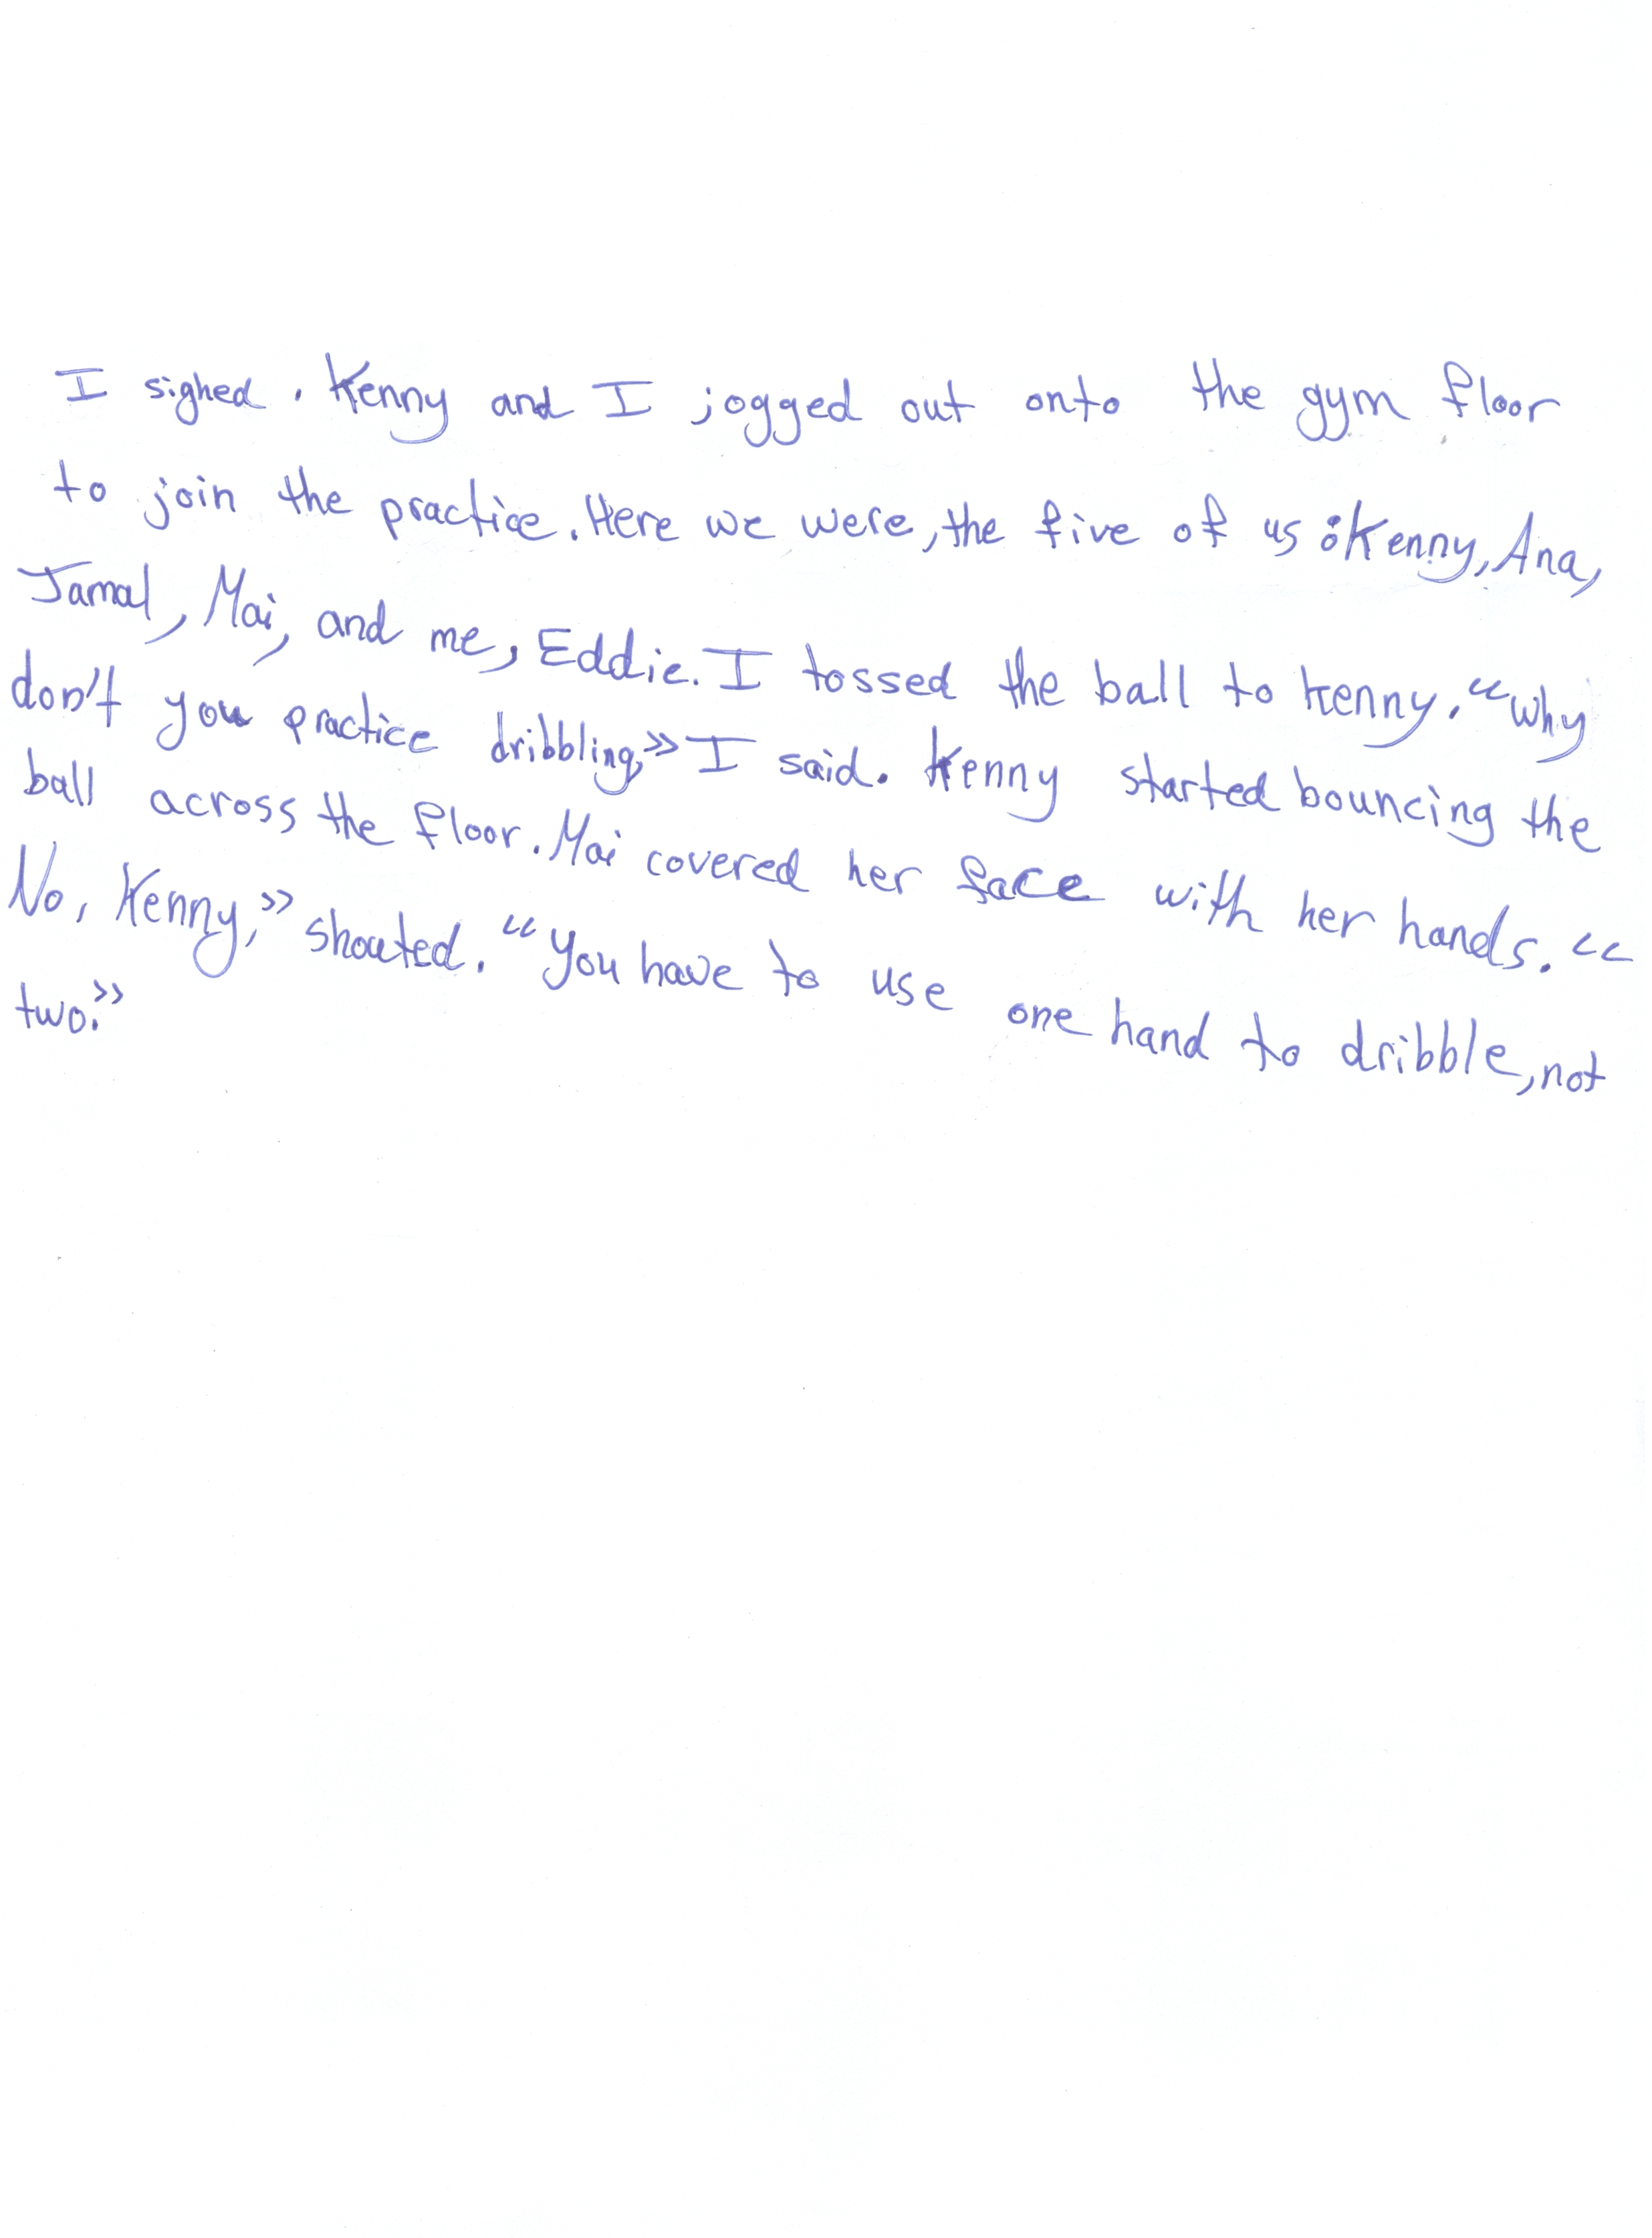 I sighed. Kenny and I jogged out onto the gym floor
to join the practice. Here we were, the five of us: Kenny, Ana,
Jamal, Mai, and me, Eddie. I tossed the ball to Kenny. “Why
don't you practice dribbling,” I said. Kenny started bouncing the
ball across the floor. Mai covered her face with her hands. “
No, Kenny,” shouted. “You have to use one hand to dribble, not
two.”